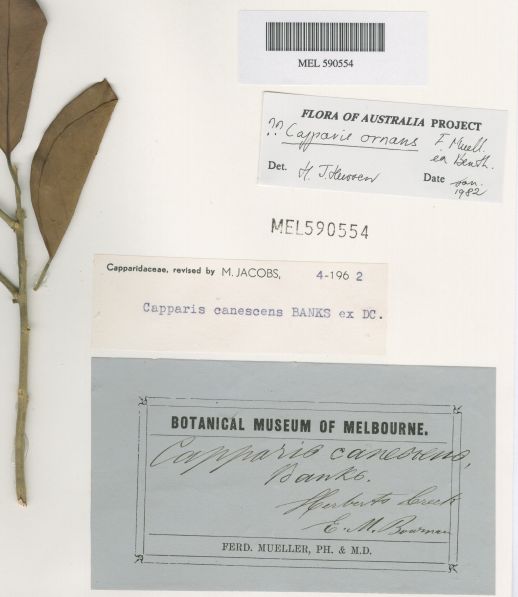 MEL 590554
FLORA OF AUSTRALIA PROJECT
?? Capparis ornans F. Muell.
ex Benth.
Det. H. J. Hewson Date Jan.
1982
MEL590554
Capparidaceae, revised by M. JACOBS, 4-196 2
Capparis canescens BANKS ex DC.
BOTANICAL MUSEUM OF MELBOURNE.
Capparis canescens,
Banks.
Herberts Creek
E. M. Bowman
FERD. MUELLER, PH. & M.D.